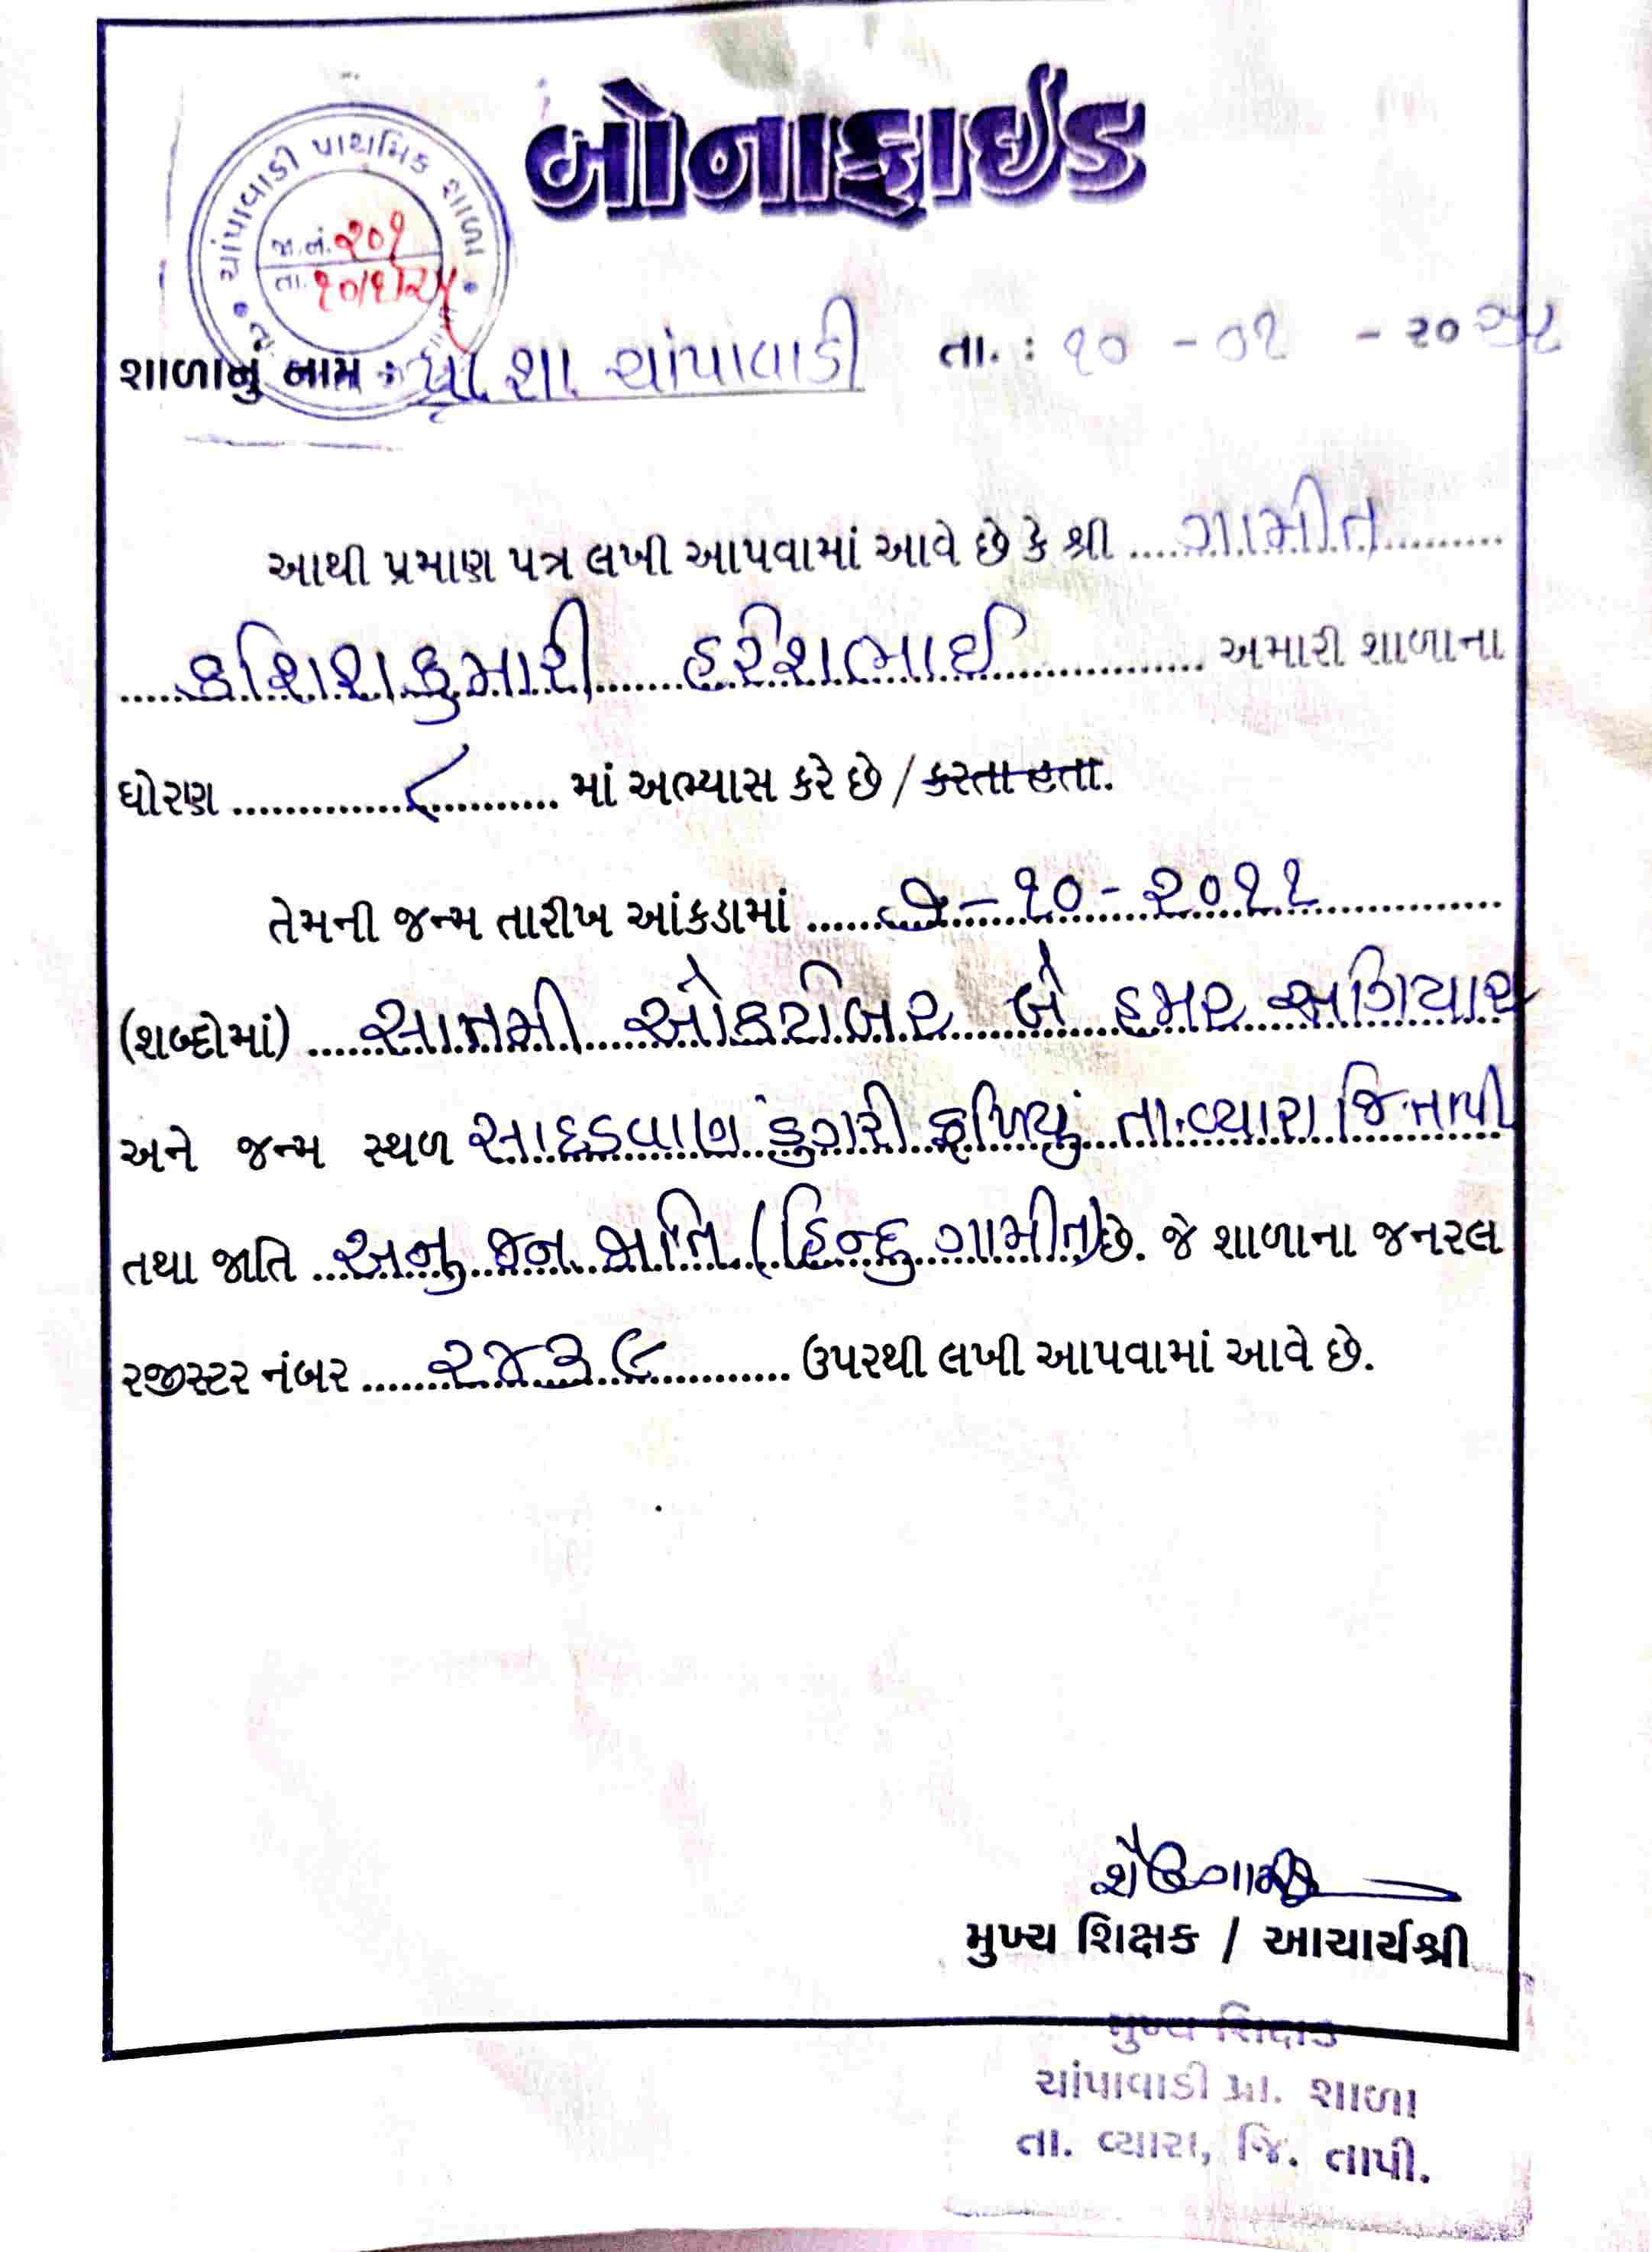 બોનાફાઈડ
ચાંપાવાડી પ્રાથમિક શાળા
જા.નં. ૨૦૧
તા. ૧૦/૧/૨૫
શાળાનું નામ : પ્રા શા. ચાંપાવાડી તા. : ૧૦ - ૦૧ - ૨૦૨૫
આથી પ્રમાણ પત્ર લખી આપવામાં આવે છે કે શ્રી ગામીત
કશિશકુમારી હરીશભાઈ અમારી શાળાના
ધોરણ ૮ માં અભ્યાસ કરે છે / કરતા હતા.
તેમની જન્મ તારીખ આંકડામાં ૭-૧૦-૨૦૧૧
(શબ્દોમાં) સાતમી ઓકટોબર બે હજાર અગિયાર
અને જન્મ સ્થળ સાદડવાણ ડુંગરી ફળિયું તા.વ્યારા જિ.તાપી
તથા જાતિ અનુ જન જાતિ (હિન્દુ ગામીત) છે. જે શાળાના જનરલ
રજીસ્ટર નંબર ૨૪૩૯ ઉપરથી લખી આપવામાં આવે છે.
મુખ્ય શિક્ષક / આચાર્યશ્રી
મુખ્ય શિક્ષક
ચાંપાવાડી પ્રા. શાળા
તા. વ્યારા, જિ. તાપી.